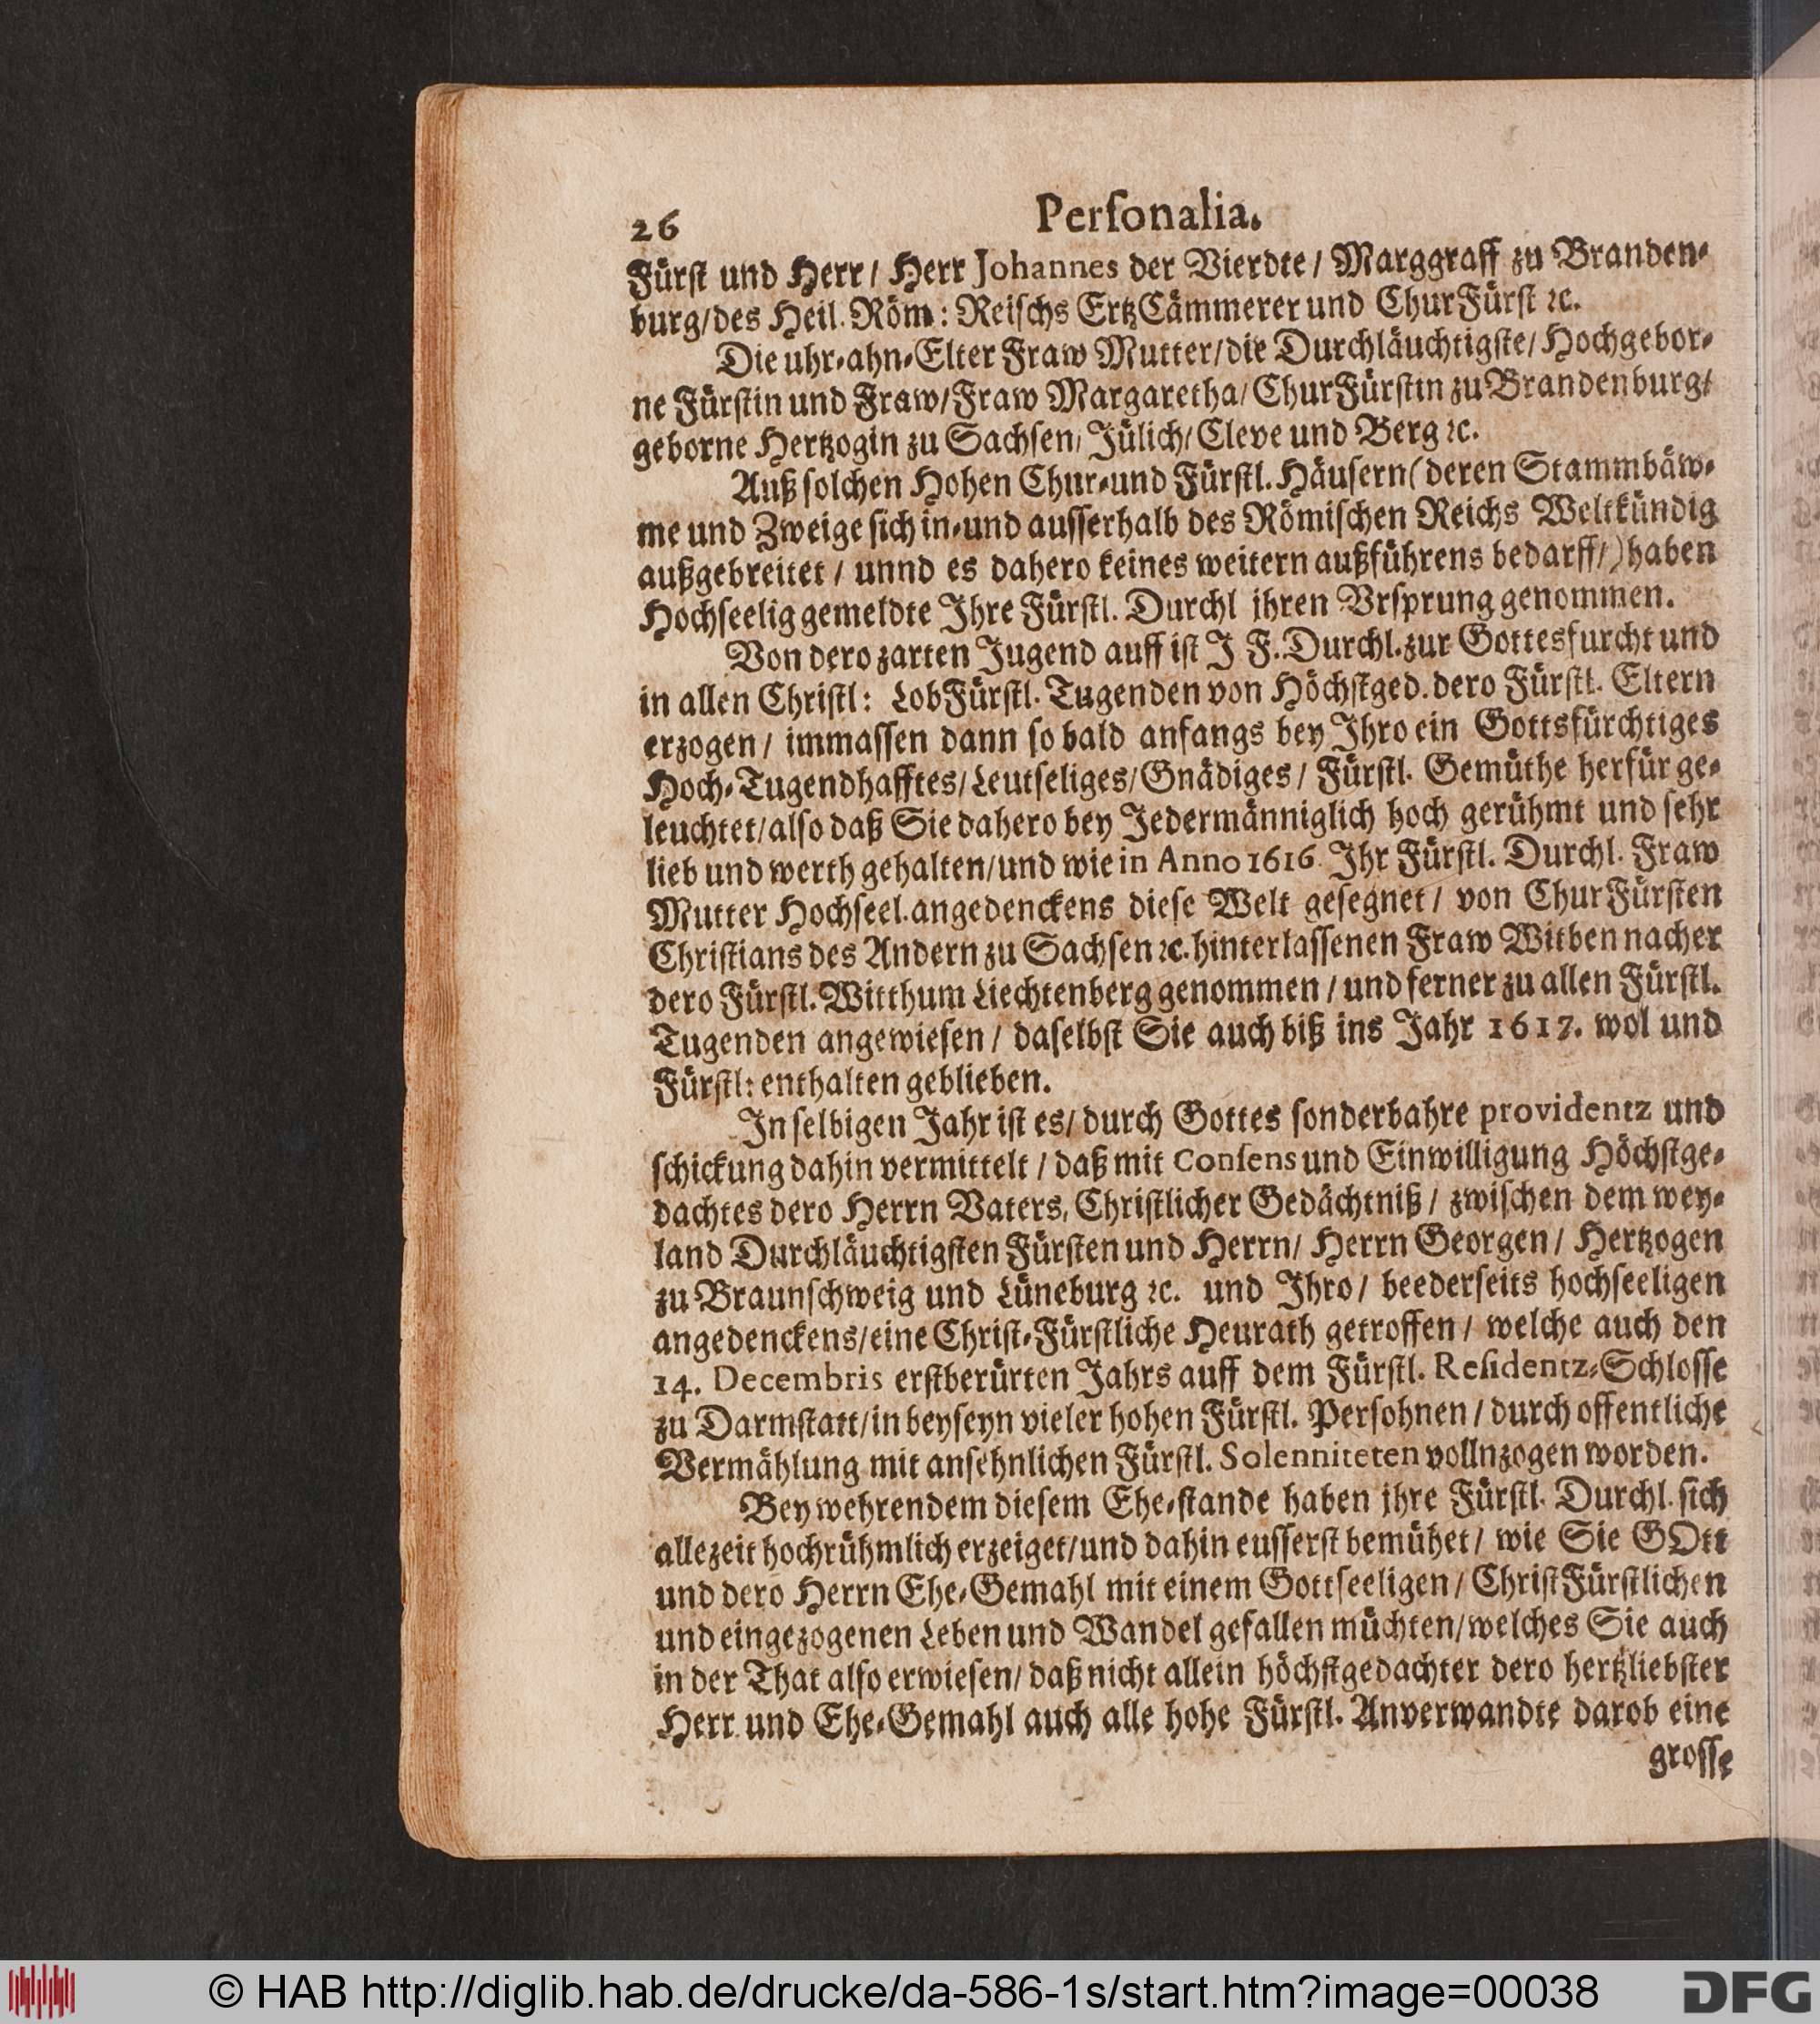 26 Personalia.
Fürst und Herr/ Herr Johannes der Vierdte/ Marggraff zu Branden-
burg/des Heil. Röm: Reischs ErtzCämmerer und ChurFürst ꝛc.
Die uhr-ahn-Elter Fraw Mutter/die Durchläuchtigste/Hochgebor-
ne Fürstin und Fraw/Fraw Margaretha/ChurFürstin zu Brandenburg/
geborne Hertzogin zu Sachsen/Jülich/Cleve und Berg ꝛc.
Auß solchen Hohen Chur-und Fürstl. Häusern(deren Stammbäw-
me und Zweige sich in-und ausserhalb des Römischen Reichs Weltkündig
außgebreitet/ unnd es dahero keines weitern außführens bedarff/)haben
Hochseelig gemeldte Ihre Fürstl. Durchl jhren Vrsprung genommen.
Von dero zarten Jugend auff ist J F. Durchl. zur Gottesfurcht und
in allen Christl: LobFürstl. Tugenden von Höchstged. dero Fürstl. Eltern
erzogen/ immassen dann so bald anfangs bey Ihro ein Gottsfürchtiges
Hoch-Tugendhafftes/Leutseliges/Gnädiges/ Fürstl. Gemüthe herfür ge-
leuchtet/also daß Sie dahero bey Jedermänniglich hoch gerühmt und sehr
lieb und werth gehalten/und wie in Anno 1616. Ihr Fürstl. Durchl. Fraw
Mutter Hochseel. angedenckens diese Welt gesegnet/ von ChurFürsten
Christians des Andern zu Sachsen ꝛc. hinterlassenen Fraw Witben nacher
dero Fürstl. Witthum Liechtenberg genommen/ und ferner zu allen Fürstl.
Tugenden angewiesen/ daselbst Sie auch biß ins Jahr 1617. wol und
Fürstl: enthalten geblieben.
In selbigen Jahr ist es/ durch Gottes sonderbahre providentz und
schickung dahin vermittelt/ daß mit Consens und Einwilligung Höchstge-
dachtes dero Herrn Vaters, Christlicher Gedächtniß/ zwischen dem wey-
land Durchläuchtigsten Fürsten und Herrn/ Herrn Georgen/ Hertzogen
zu Braunschweig und Lüneburg ꝛc. und Ihro/ beederseits hochseeligen
angedenckens/eine Christ-Fürstliche Heurath getroffen/ welche auch den
14. Decembris erstberürten Jahrs auff dem Fürstl. Residentz-Schlosse
zu Darmstatt/in beyseyn vieler hohen Fürstl. Persohnen/ durch offentliche
Vermählung mit ansehnlichen Fürstl. Solenniteten vollnzogen worden.
Bey wehrendem diesem Ehe-stande haben jhre Fürstl. Durchl. sich
allezeit hochrühmlich erzeiget/und dahin eusserst bemühet/ wie Sie GOtt
und dero Herrn Ehe-Gemahl mit einem Gottseeligen/ ChristFürstlichen
und eingezogenen Leben und Wandel gefallen müchten/welches Sie auch
in der That also erwiesen/ daß nicht allein höchstgedachter dero hertzliebster
Herr und Ehe-Gemahl auch alle hohe Fürstl. Anverwandte darob eine
grosse
© HAB http://diglib.hab.de/drucke/da-586-1s/start.htm?image=00038 DFG